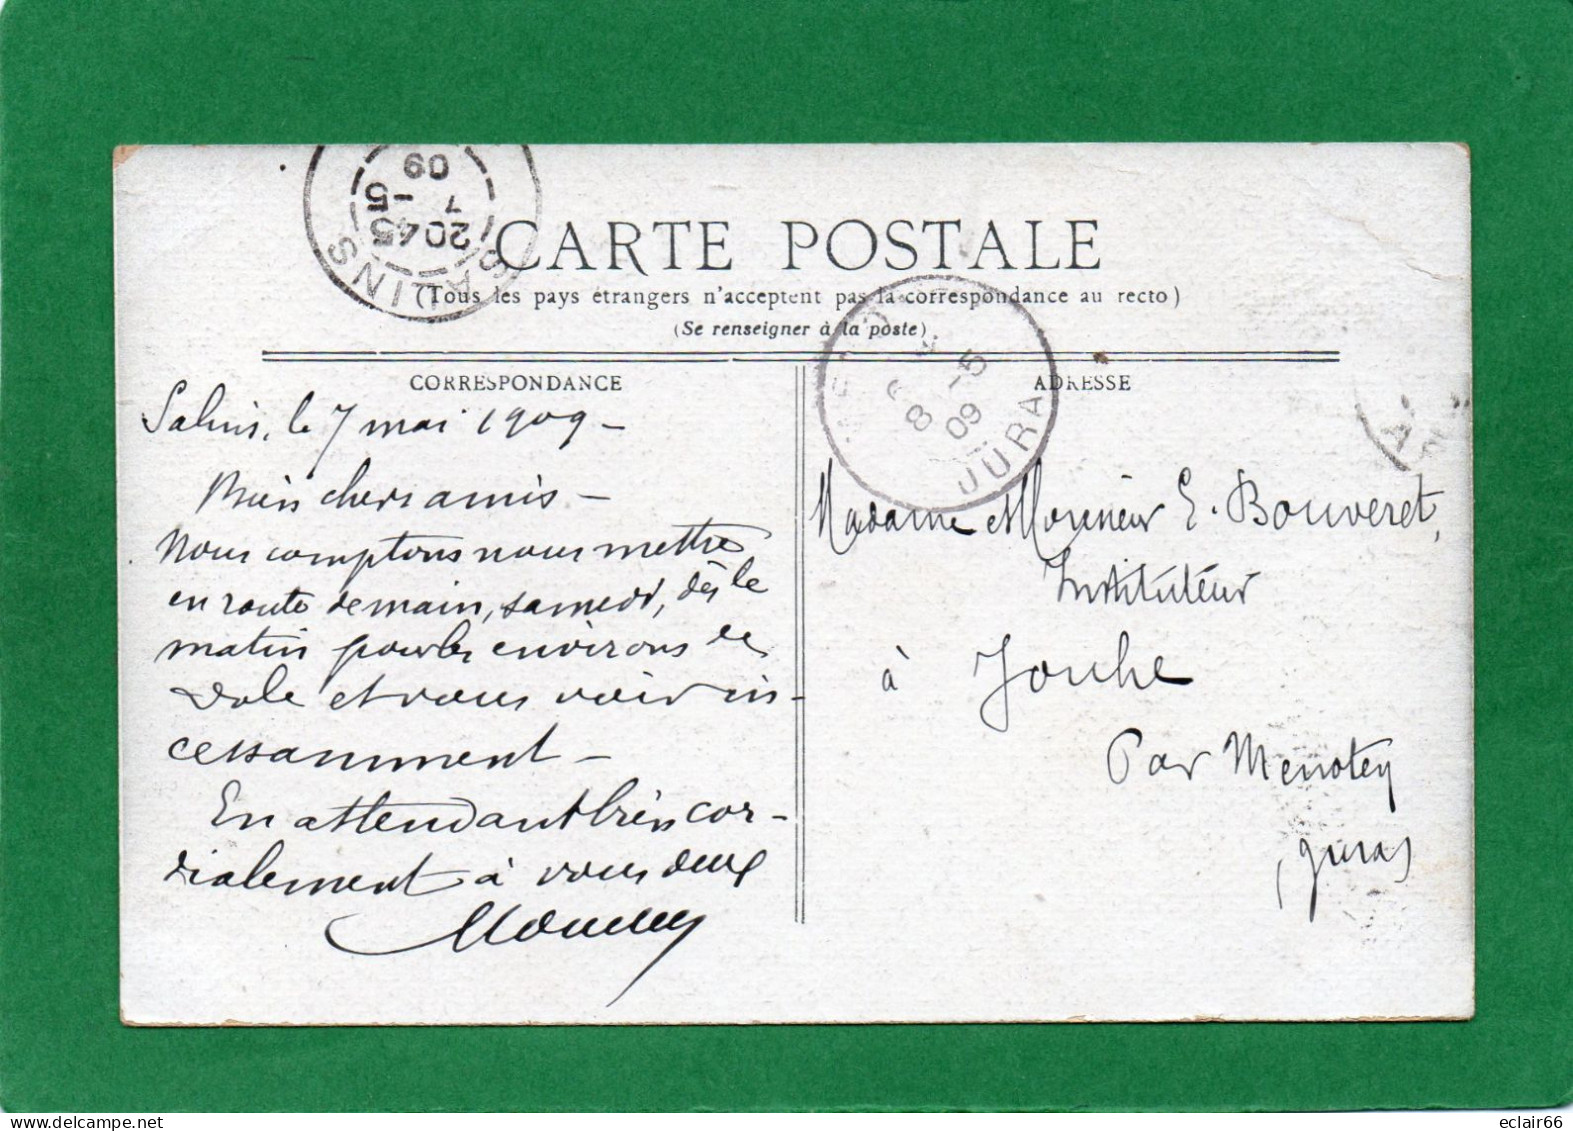 SALINS
2045
7 -5
09
CARTE POSTALE
(Tous les pays étrangers n'acceptent pas la correspondance au recto)
(Se renseigner à la poste)
CORRESPONDANCE
Salins, le 7 mai 1909 –
Bien chers amis –
Nous comptons nous mettre
en route demain, samedi, dès le
matin pour les environs de
Dole et vous voir in-
cessamment –
En attendant bien cor-
dialement à vous deux
ADRESSE
8 -5
09
JURA
Madame et Monsieur E. Bouveret,
Instituteur
à Jouhe
Par Menotey
(Jura)
delcampe.net
eclair66